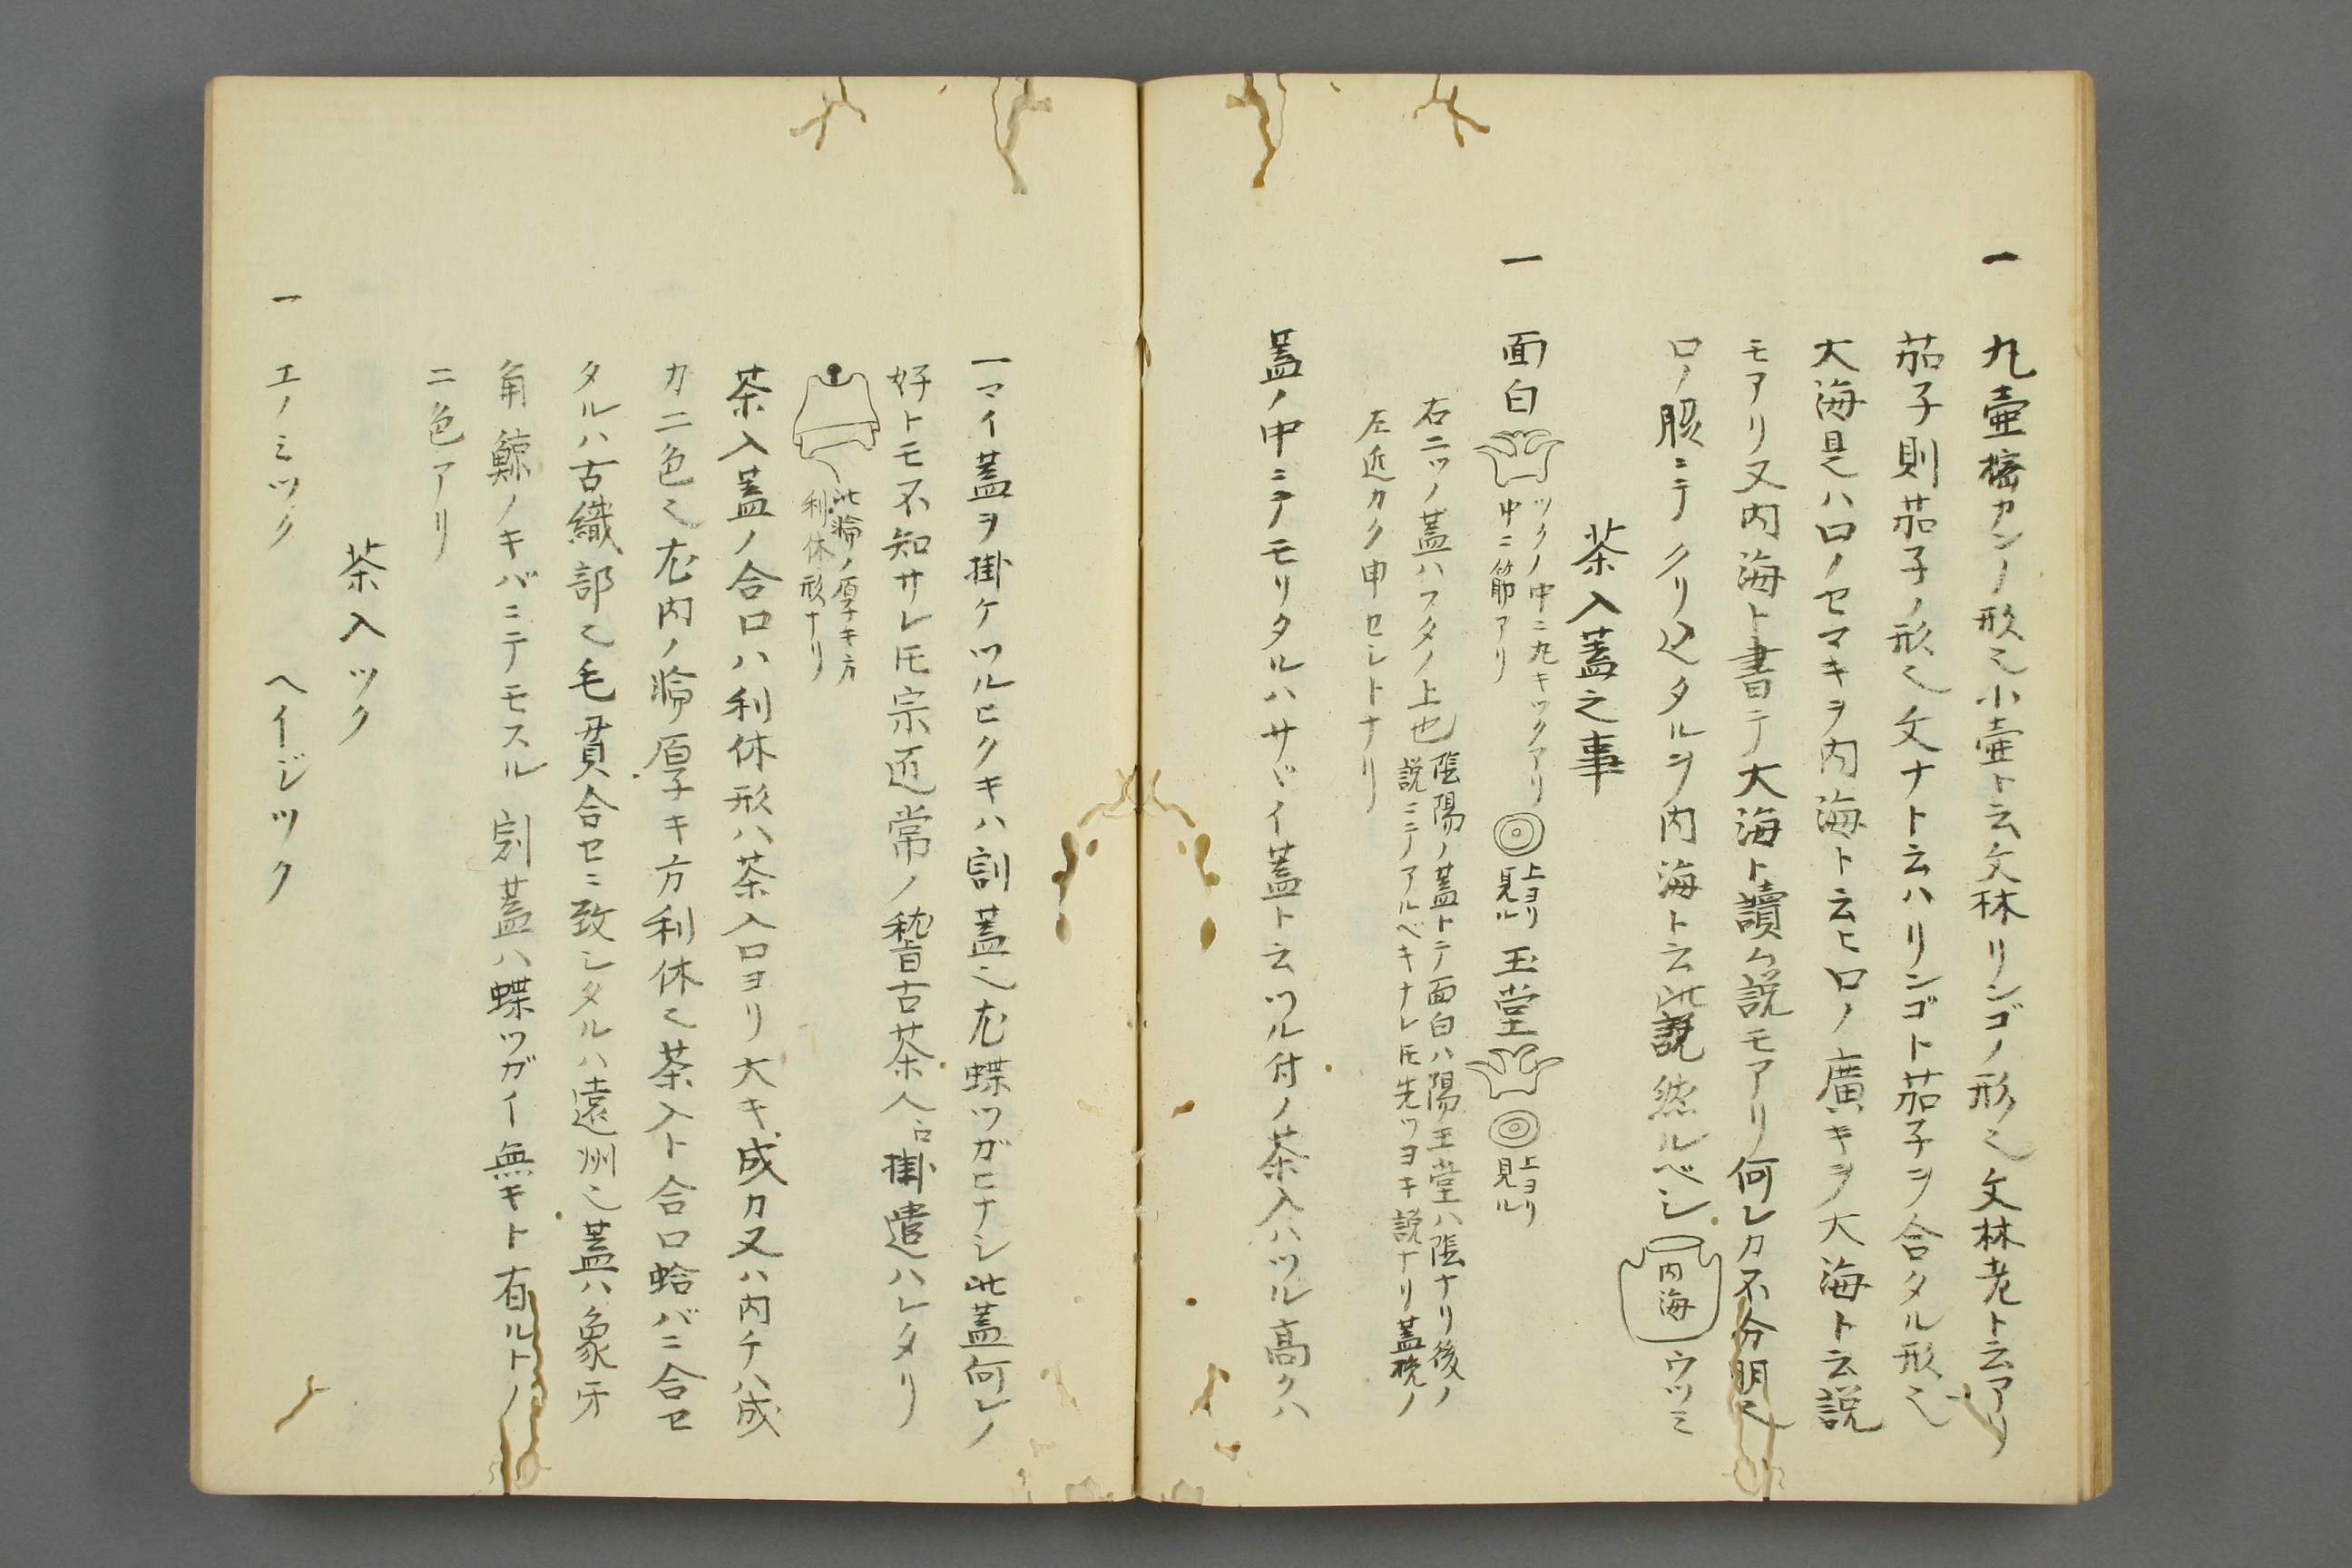 一 丸壷椿カンノ形也小壷ト云文林リンゴノ形也文林老ト云アリ
茄子則茄子ノ形也文ナト云ハリンゴト茄子ヲ合タル形也
大海是ハ口ノセマキヲ内海ト云ヒ口ノ廣キヲ大海ト云説
モアリ又内海ト書テ大海ト讀ム説モアリ何レカ不分明也
口ノ脇ニテクリ込タルヲ内海ト云此説然ルベシ
内海
ウツミ
茶入蓋之事
一 面白
ツクノ中ニ丸キツクアリ
中ニ筋アリ
上ヨリ
見ル
玉堂
上ヨリ
見ル
右二ツノ蓋ハフタノ上也
陰陽ノ蓋トテ面白ハ陽玉堂ハ陰ナリ後ノ
説ニテアルベキナレ𪜈先ツヨキ説ナリ蓋挽ノ
左近カク申セシトナリ
蓋ノ中ニテモリタルハサヾイ蓋ト云ツル付ノ茶入ハツル高クハ
一マイ蓋ヲ掛ケツルヒクキハ割蓋也尤蝶ツガヒナシ此蓋何レノ
好トモ不知サレ𪜈宗迊常ノ稽古茶入ニ掛遣ハレタリ
此輪ノ厚キ方
利休形ナリ
茶入蓋ノ合口ハ利休形ハ茶入口ヨリ大キ成カ又ハ内チハ成
カ二色也尤内ノ輪厚キ方利休也茶入ト合口蛤バニ合セ
タルハ古織部也毛貫合セニ致シタルハ遠州也蓋ハ象牙
角鯨ノキバニテモスル 割蓋ハ蝶ツガイ無キト有ルトノ
二色アリ
茶入ツク
一 エノミツク ヘイジツク